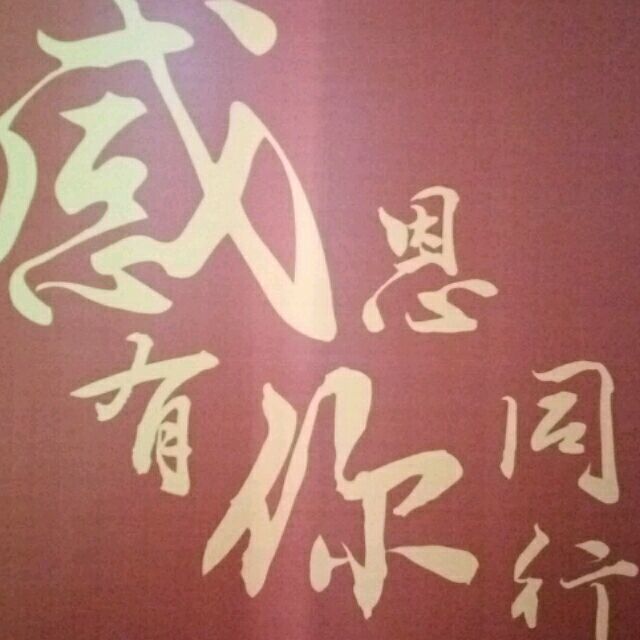 感恩
有你
同行